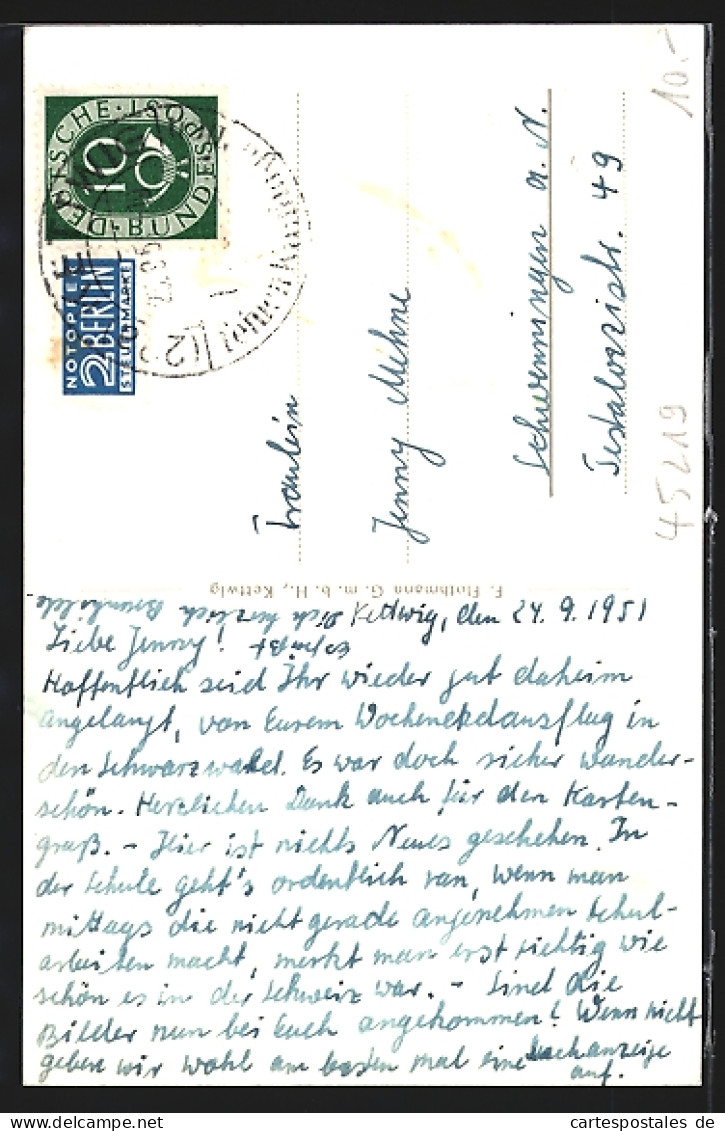 10.-
45219
DEUTSCHE · BUNDESPOST
10
NOTOPFER
2 BERLIN
STEUERMARKE
Fräulein
Jenny Mehne
Schwenningen a. N.
Pestalozzistr. 49
F. Flothmann G. m. b. H., Kettwig
Kettwig, den 24.9.1951
Liebe Jenny!
Hoffentlich seid Ihr wieder gut daheim
angelangt, von Eurem Wochenendausflug in
den Schwarzwald. Es war doch sicher wunder-
schön. Herzlichen Dank auch für den Karten-
gruß. - Hier ist nichts Neues geschehen. In
der Schule geht's ordentlich ran, wenn man
mittags die nicht gerade angenehmen Schul-
arbeiten macht, merkt man erst richtig wie
schön es in der Schweiz war. - Sind die
Bilder nun bei Euch angekommen? Wenn nicht
geben wir wohl am besten mal eine Suchanzeige
auf.
Es grüßt
Dich herzlich Brunhilde
cartespostales-de-collection.com
cartespostales.de